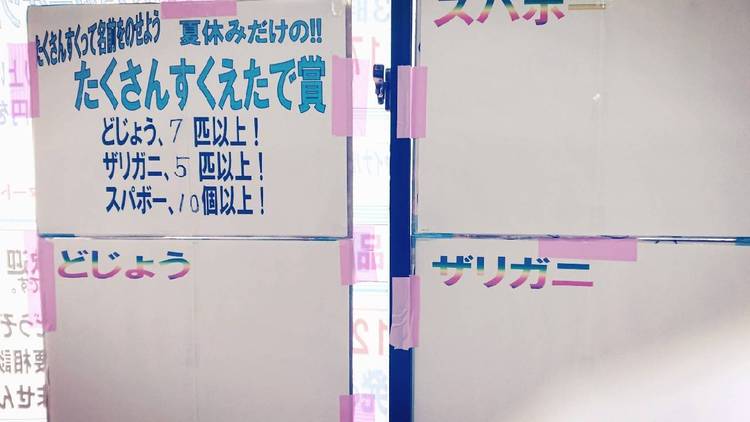 たくさんすくって名前をのせよう 夏休みだけの!!
たくさんすくえたで賞
どじょう、7 匹以上!
ザリガニ、5 匹以上!
スパボー、10個以上!
どじょう
スパボー
ザリガニ